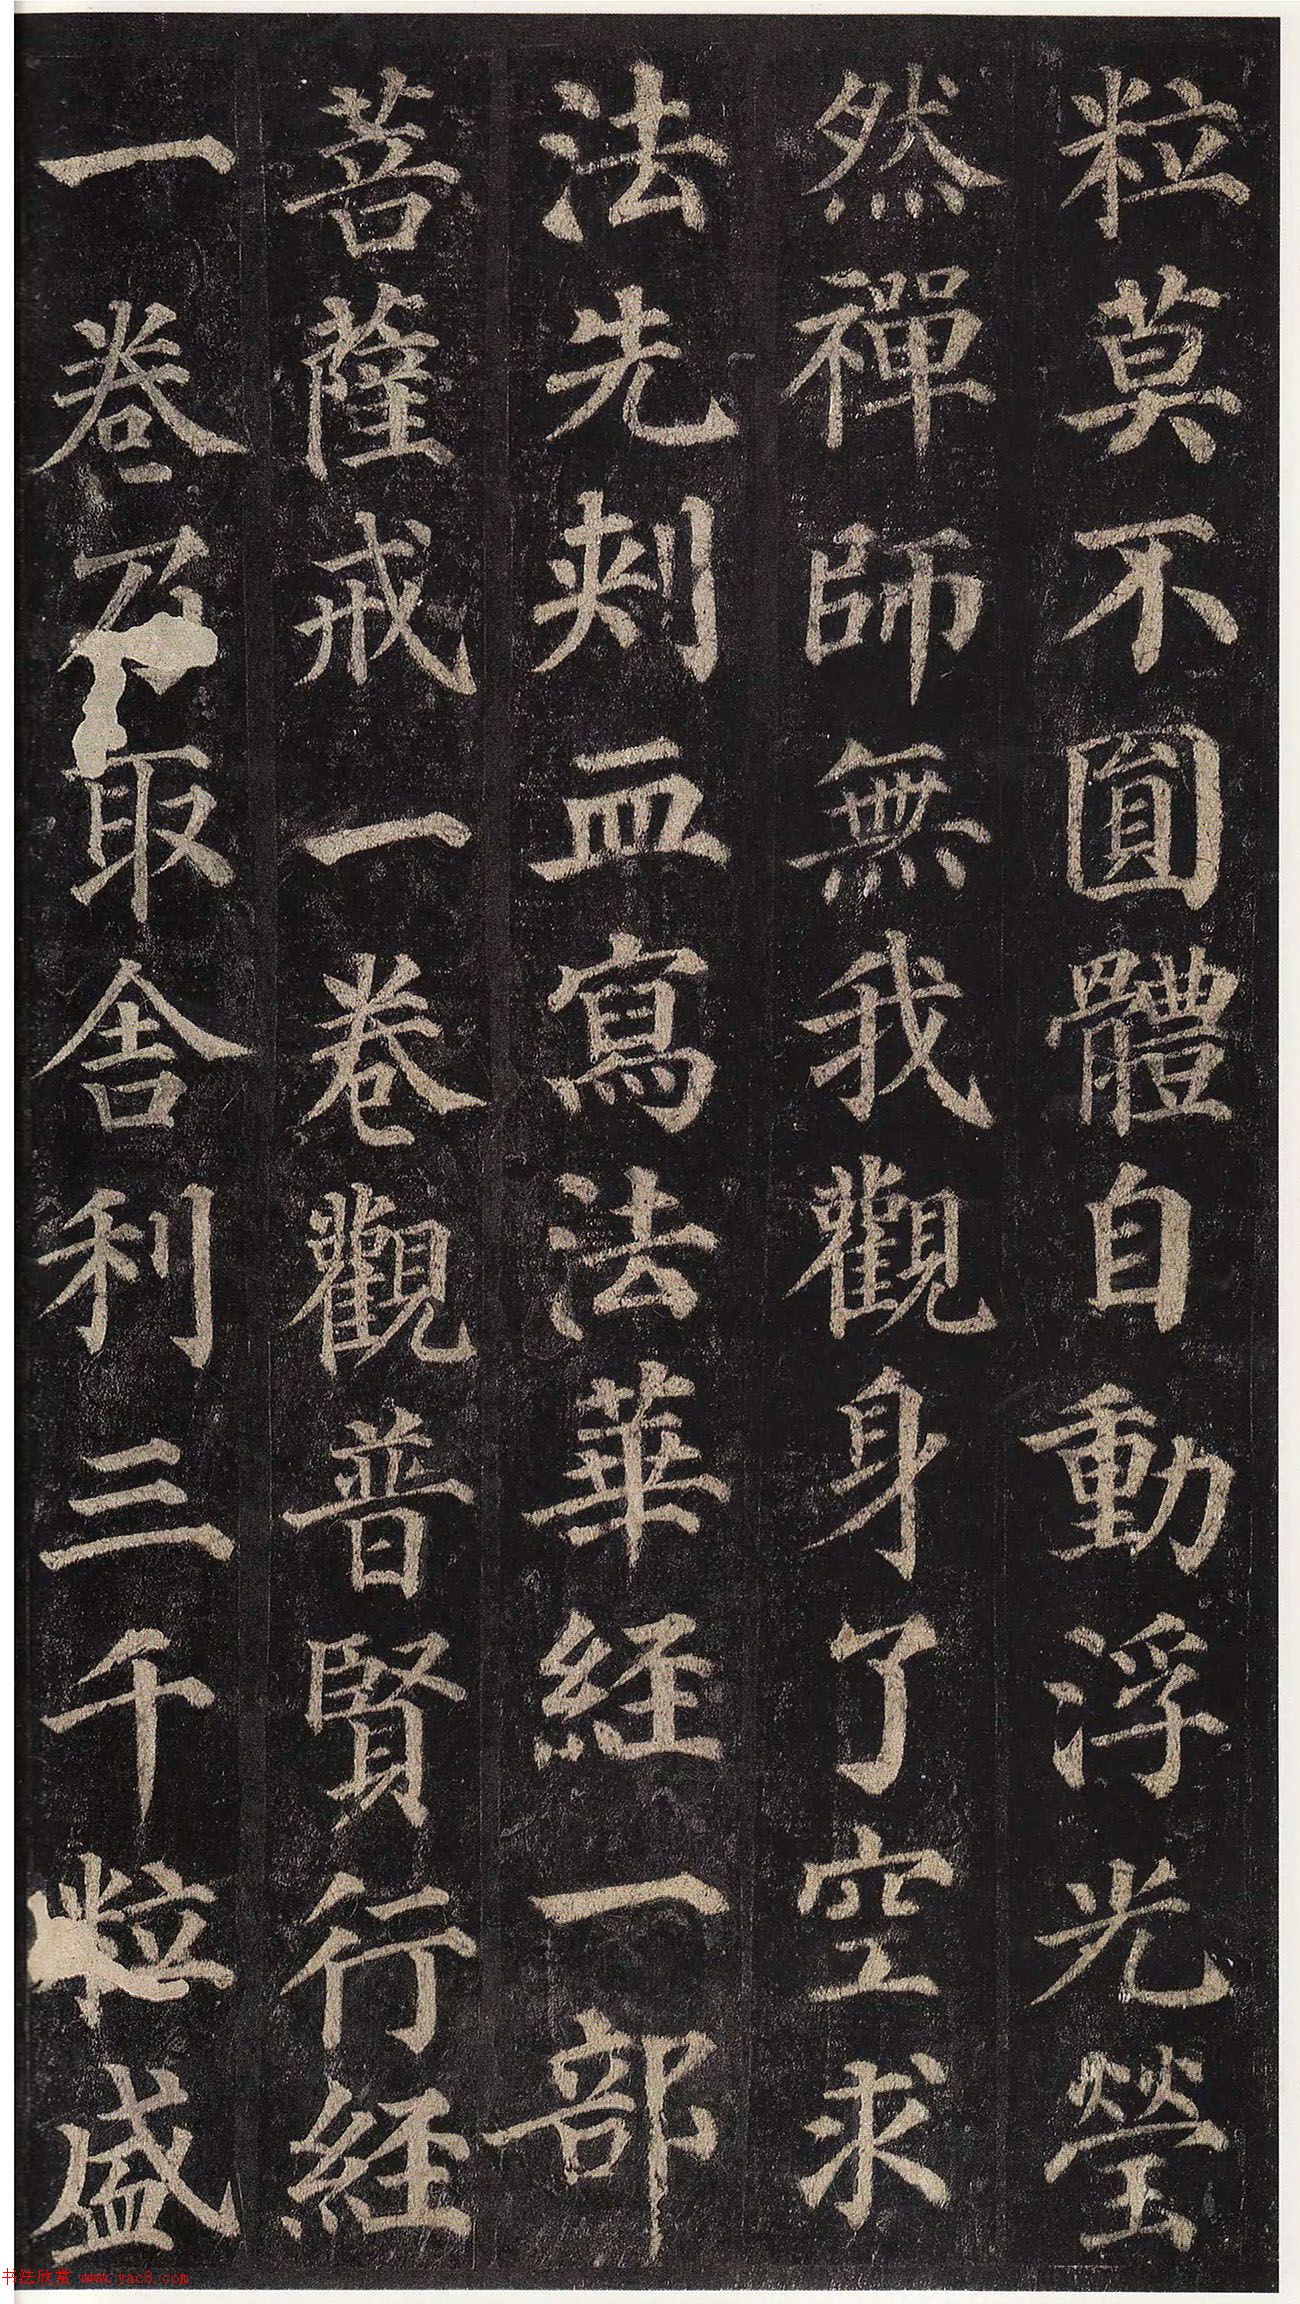 粒莫不圓體自動浮光瑩
然禪師無我觀身了空求
法先刾血寫法華経一部
菩薩戒一卷觀普賢行経
一卷乃取舎利三千粒盛
书法欣赏 www.yac8.com